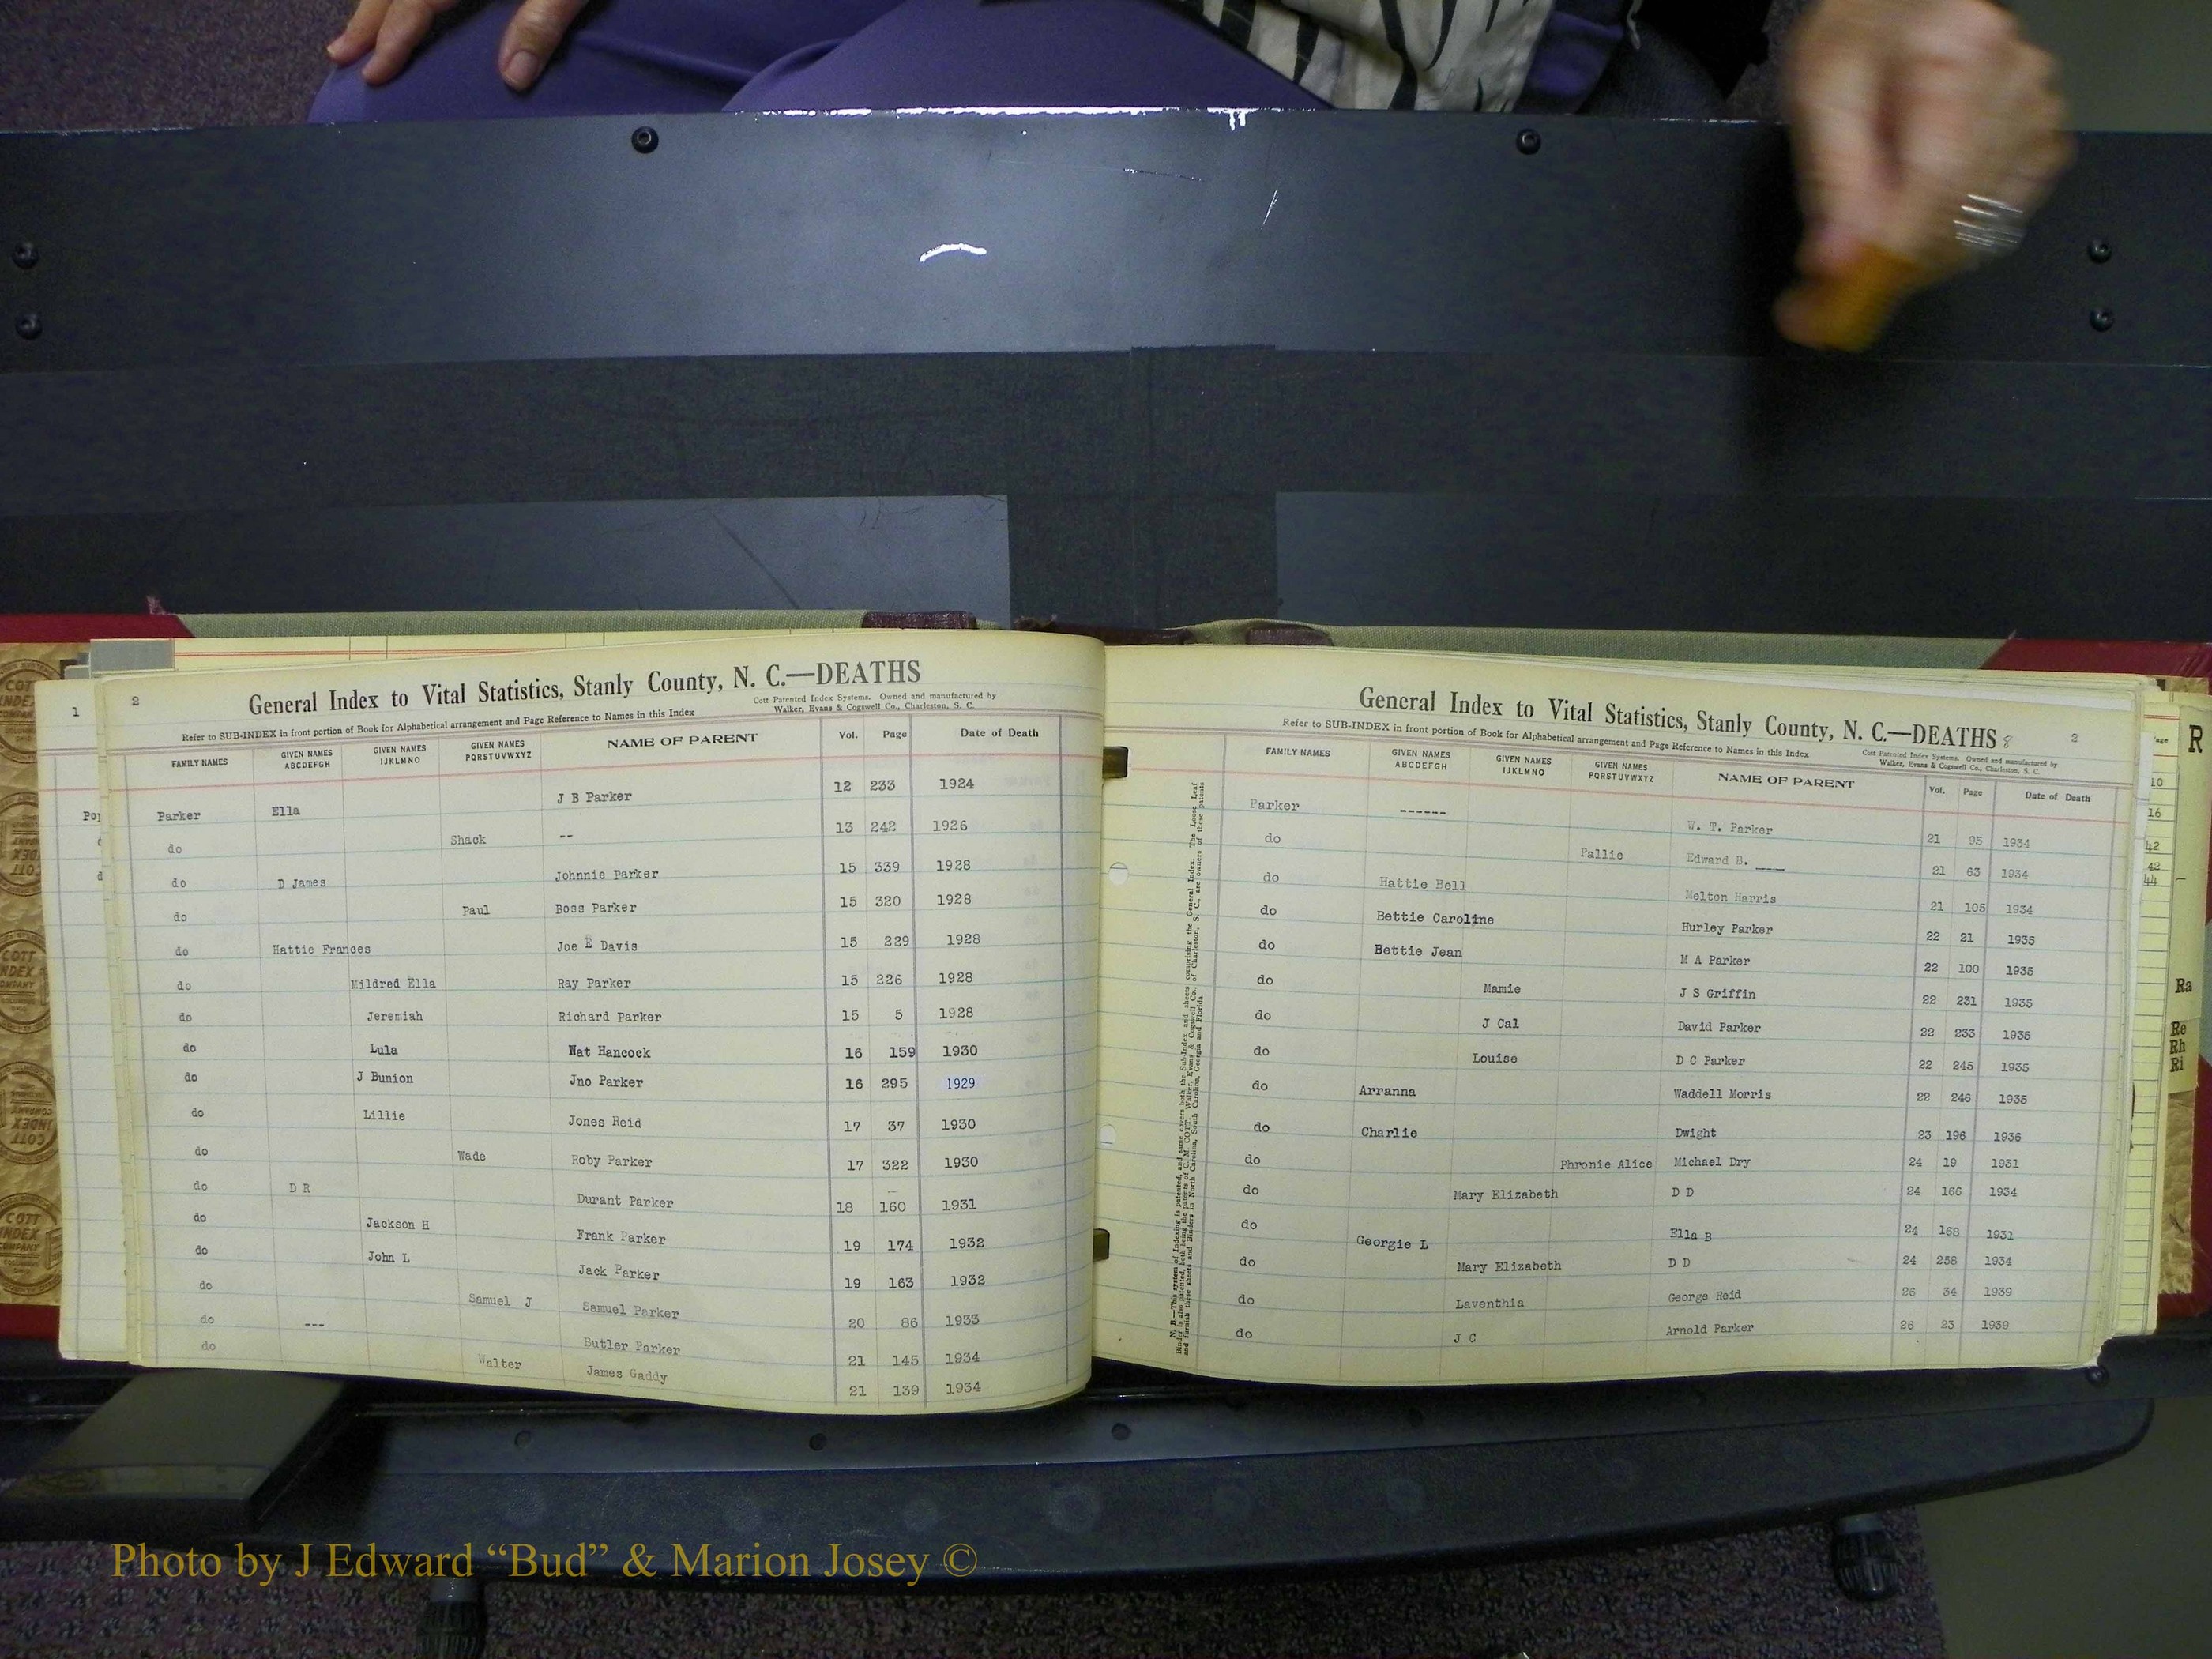 1
2
General Index to Vital Statistics, Stanly County, N. C.—DEATHS
Cott Patented Index Systems. Owned and manufactured by
Walker, Evans & Cogswell Co., Charleston, S. C.
Refer to SUB-INDEX in front portion of Book for Alphabetical arrangement and Page Reference to Names in this Index
FAMILY NAMES GIVEN NAMES ABCDEFGH GIVEN NAMES IJKLMNO GIVEN NAMES PQRSTUVWXYZ NAME OF PARENT Vol. Page Date of Death
Parker Ella J B Parker 12 233 1924
do Shack -- 13 242 1926
do D James Johnnie Parker 15 339 1928
do Paul Boss Parker 15 320 1928
do Hattie Frances Joe E Davis 15 229 1928
do Mildred Ella Ray Parker 15 226 1928
do Jeremiah Richard Parker 15 5 1928
do Lula Nat Hancock 16 159 1930
do J Bunion Jno Parker 16 295 1929
do Lillie Jones Reid 17 37 1930
do Wade Roby Parker 17 322 1930
do D R Durant Parker 18 160 1931
do Jackson H Frank Parker 19 174 1932
do John L Jack Parker 19 163 1932
do Samuel J Samuel Parker 20 86 1933
do --- Butler Parker 21 145 1934
do Walter James Gaddy 21 139 1934
General Index to Vital Statistics, Stanly County, N. C.—DEATHS 8
2
Refer to SUB-INDEX in front portion of Book for Alphabetical arrangement and Page Reference to Names in this Index
Cott Patented Index Systems. Owned and manufactured by
Walker, Evans & Cogswell Co., Charleston, S. C.
FAMILY NAMES GIVEN NAMES ABCDEFGH GIVEN NAMES IJKLMNO GIVEN NAMES PQRSTUVWXYZ NAME OF PARENT Vol. Page Date of Death
Parker ------ W. T. Parker 21 95 1934
do Pallie Edward B. ____ 21 63 1934
do Hattie Bell Melton Harris 21 105 1934
do Bettie Caroline Hurley Parker 22 21 1935
do Bettie Jean M A Parker 22 100 1935
do Mamie J S Griffin 22 231 1935
do J Cal David Parker 22 233 1935
do Louise D C Parker 22 245 1935
do Arranna Waddell Morris 22 246 1935
do Charlie Dwight 23 196 1936
do Phronie Alice Michael Dry 24 19 1931
do Mary Elizabeth D D 24 166 1934
do Georgie L Ella B 24 168 1931
do Mary Elizabeth D D 24 258 1934
do Laventhia George Reid 26 34 1939
do J C Arnold Parker 26 23 1939
N. B.—This system of Indexing is patented, and same covers both the Sub-Index and sheets comprising the General Index. The Loose Leaf
R
Ra
Re
Rh
Ri
COTT INDEX COMPANY
Photo by J Edward “Bud” & Marion Josey ©